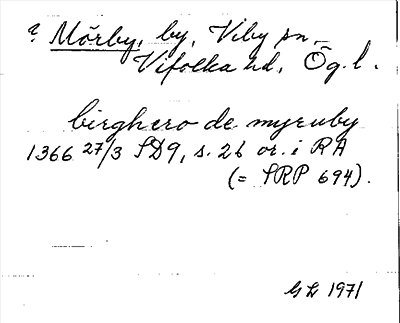 ? Mörby, by, Viby sn.
Vifolka hd, Ög. l.
birghero de myruby
1366 27/3 SD9, s. 26 or. i RA
(= SRP 694).
GL 1971